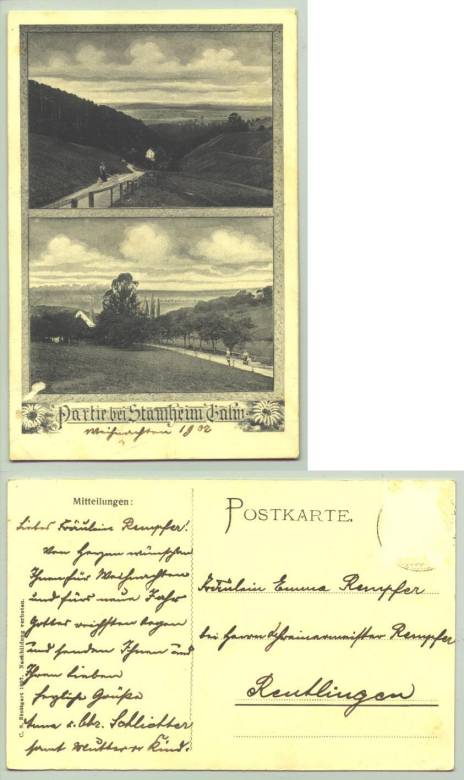 Partie bei Stamheim Calw.
Weihnachten 1902
Mitteilungen:
Liebes Fräulein Rempfer!
Von Herzen wünschen
Ihnen für Weihnachten
und fürs neue Jahr
Gottes reichsten Segen
und senden Ihnen und
Ihren Lieben
herzliche Grüße
Anna u. Schlichter
samt Mutter u. Kind.
C. u. Stuttgart Nachbildung verboten.
POSTKARTE.
Fräulein Emma Rempfer
bei Herrn Schreinermeister Rempfer
Reutlingen